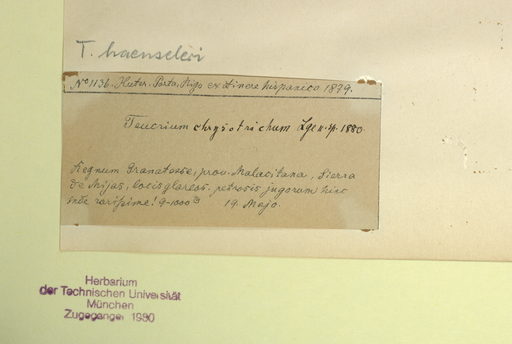 T. haenseleri
No 1136. Huter, Porta, Rigo ex itinere hispanico 1879.
Teucrium chrysotrichum Lge n. sp. 1880
Regnum Granatense, prov. Malacitana, Sierra
de Mijas, locis glareos. petrosis jugorum hinc
inde rarissime! 9-1000
19. Majo.
Herbarium
der Technischen Universität
München
Zugegangen 1930